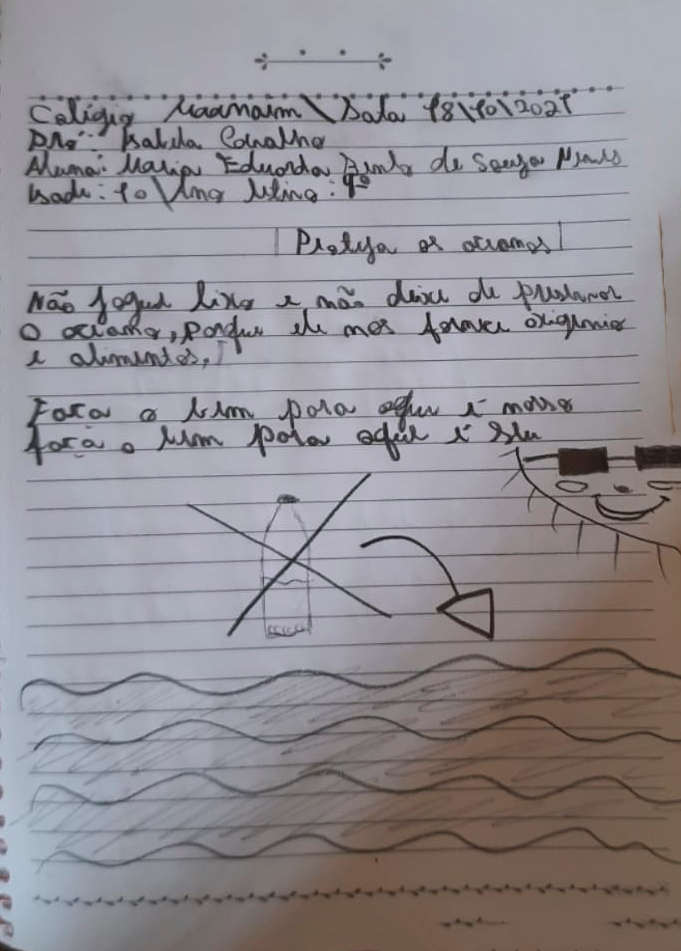 Colégio Maanaim \ Data 18\10\2021
Pro: Isabela Carvalho
Aluna: Maria Eduarda Bento de Souza
Idade: 10 \ Ano letivo: 4º
Proteja os oceanos
Não jogue lixo e não deixe de preservar
O oceano, porque ele nos fornece oxigênio
e alimentos,
Faça o bem para o que é nosso
faça o bem para o que é seu